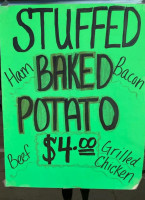 STUFFED
Ham BAKED Bacon
POTATO
$4.00
Beef Grilled
Chicken